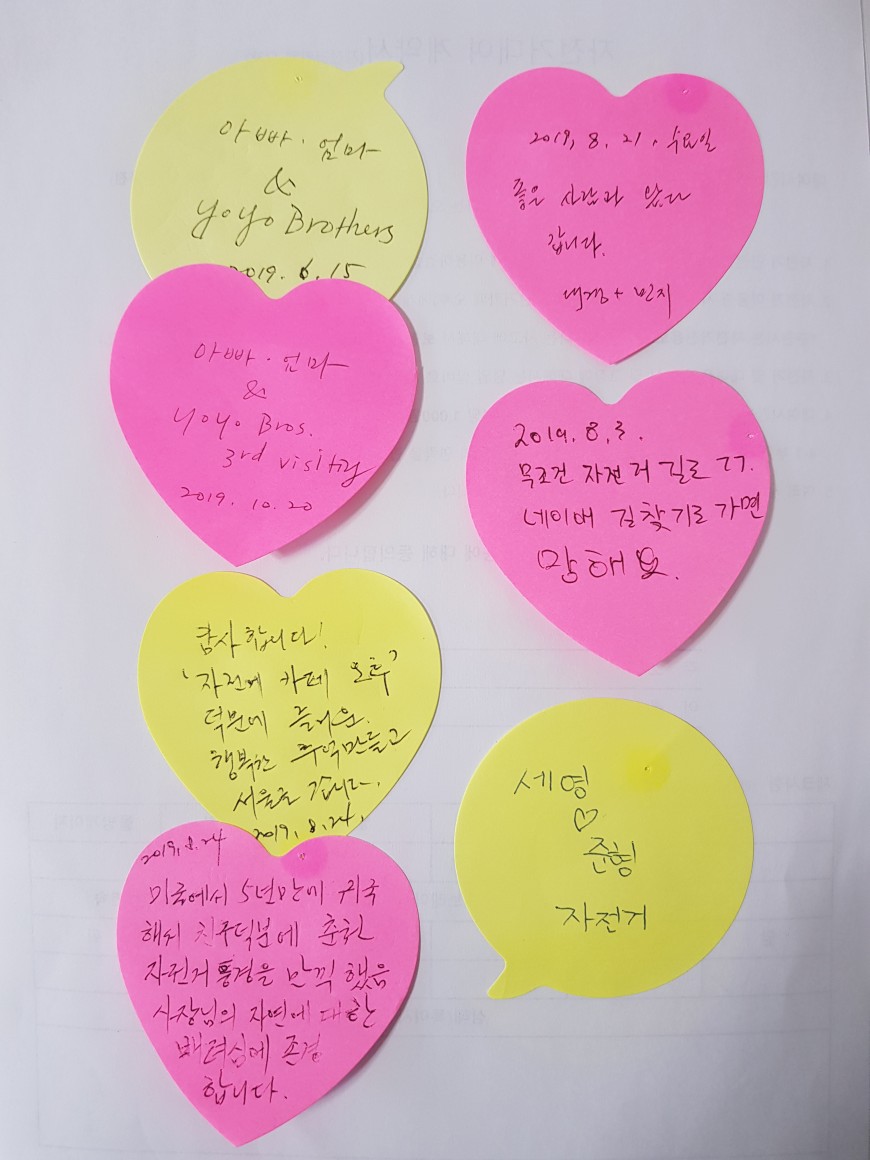 아빠·엄마
&
yoyo Brothers
2019. 6.15
아빠·엄마
&
yoyo Bros.
3rd visiting
2019. 10. 20
감사합니다!
덕분에 즐거운.
행복한 추억만들고
서울로 갑니다.
2019. 8.24.
2019. 8.24
미국에서 5년만에 귀국
해서 친구덕분에 춘천
자전거 풍경을 만끽 했음
사장님의 자연에 대한
배려심에 존경
합니다.
2019, 8. 21. 수요일
좋은 사람과 왔다
갑니다.
2019. 8.3.
무조건 자전거 길로 ㄱㄱ.
네이버 길찾기로 가면
망해요.
세영
♡
준형
자전거